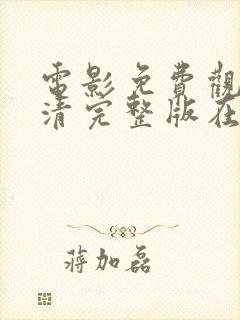 電影免費觀
清完整版在
蔣加磊